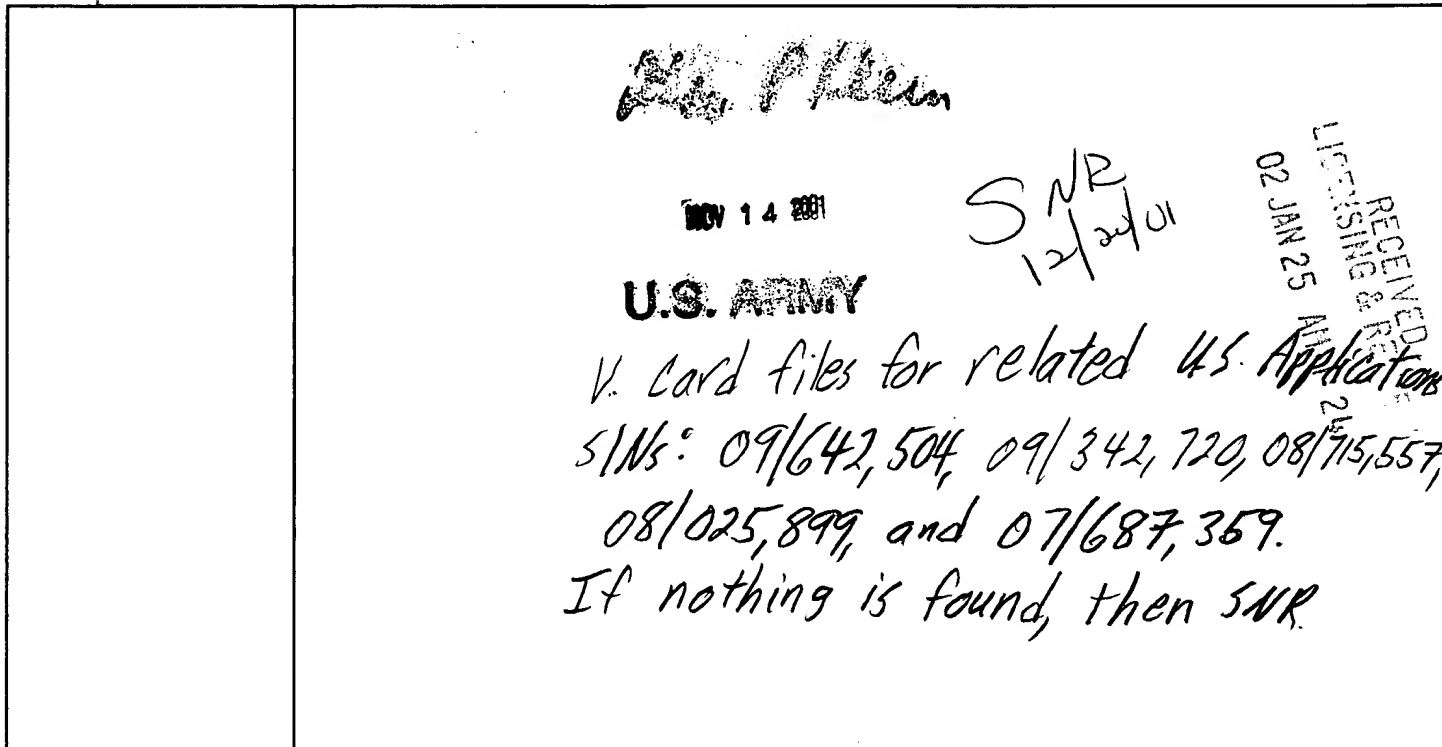 NOV 14 2001
SNR
12/20/01
RECEIVED
LICENSING &
02 JAN 25
U.S. ARMY
V. Card files for related U.S. Applications
S/Ns: 09/642,504, 09/342,720, 08/715,557,
08/025,899, and 07/687,359.
If nothing is found, then SNR.